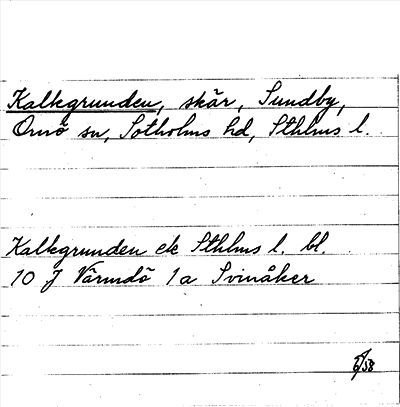 Kalkgrunden, skär, Sundby,
Ornö sn, Sotholms hd, Sthlms l.
Kalkgrunden ek Sthlms l. bl.
10 J Värmdö 1a Svinåker